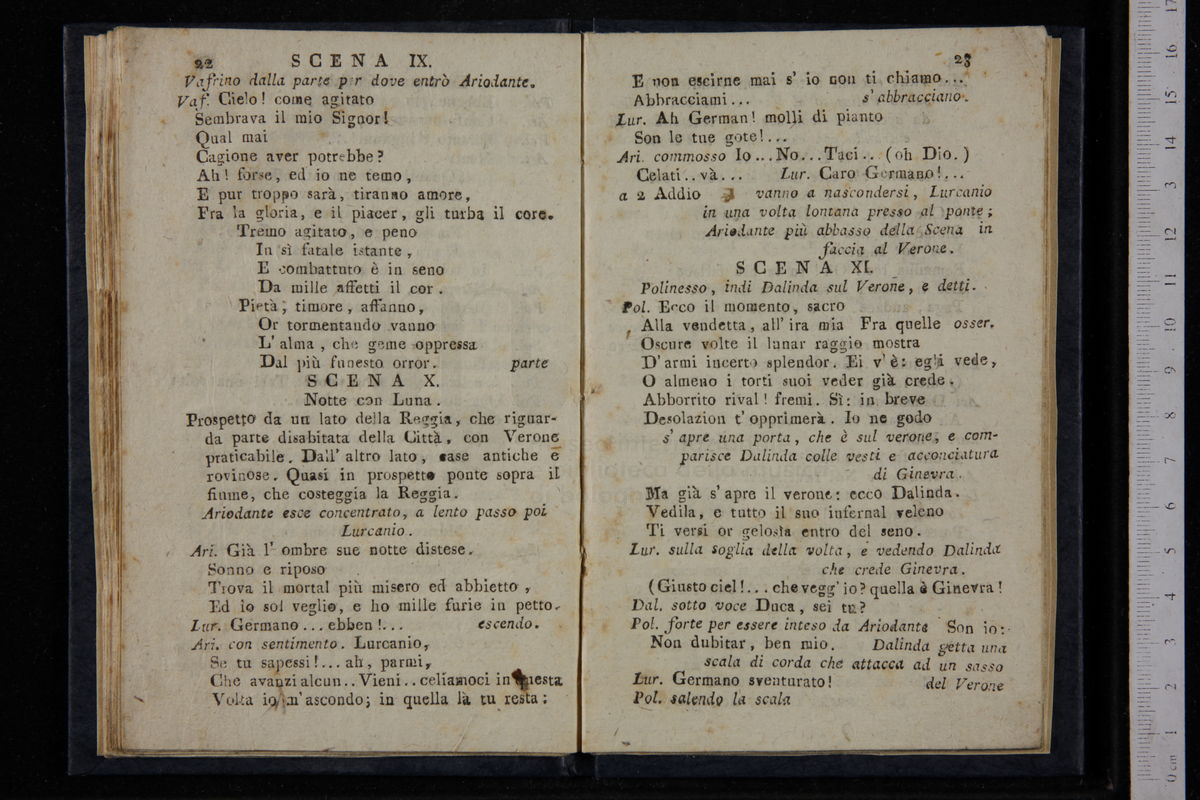 22 SCENA IX.
Vafrino dalla parte per dove entrò Ariodante.
Vaf. Cielo! come agitato
Sembrava il mio Signor!
Qual mai
Cagione aver potrebbe?
Ah! forse, ed io ne temo,
E pur troppo sarà, tiranno amore,
Fra la gloria, e il piacer, gli turba il core.
Tremo agitato, e peno
In sì fatale istante,
E combattuto è in seno
Da mille affetti il cor.
Pietà, timore, affanno,
Or tormentando vanno
L'alma, che geme oppressa
Dal più funesto orror. parte
SCENA X.
Notte con Luna.
Prospetto da un lato della Reggia, che riguar-
da parte disabitata della Città, con Verone
praticabile. Dall' altro lato, case antiche e
rovinose. Quasi in prospetto ponte sopra il
fiume, che costeggia la Reggia.
Ariodante esce concentrato, a lento passo poi
Lurcanio.
Ari. Già l' ombre sue notte distese.
Sonno e riposo
Trova il mortal più misero ed abbietto,
Ed io sol veglio, e ho mille furie in petto.
Lur. Germano... ebben!... escendo.
Ari. con sentimento. Lurcanio,
Se tu sapessi!... ah, parmi,
Che avanzi alcun.. Vieni.. celiamoci in questa
Volta io m'ascondo; in quella là tu resta:
23
E non escirne mai s' io non ti chiamo...
Abbracciami... s' abbracciano.
Lur. Ah German! molli di pianto
Son le tue gote!...
Ari. commosso Io... No... Taci.. (oh Dio.)
Celati.. và... Lur. Caro Germano!...
a 2 Addio vanno a nascondersi, Lurcanio
in una volta lontana presso al ponte;
Ariodante più abbasso della Scena in
faccia al Verone.
SCENA XI.
Polinesso, indi Dalinda sul Verone, e detti.
Pol. Ecco il momento, sacro
Alla vendetta, all' ira mia Fra quelle osser.
Oscure volte il lunar raggio mostra
D'armi incerto splendor. Ei v'è: egli vede,
O almeno i torti suoi veder già crede.
Abborrito rival! fremi. Sì: in breve
Desolazion t' opprimerà. Io ne godo
s' apre una porta, che è sul verone, e com-
parisce Dalinda colle vesti e acconciatura
di Ginevra.
Ma già s'apre il verone: ecco Dalinda.
Vedila, e tutto il suo infernal veleno
Ti versi or gelosia entro del seno.
Lur. sulla soglia della volta, e vedendo Dalinda
che crede Ginevra.
(Giusto ciel!... che vegg' io? quella è Ginevra!
Dal. sotto voce Duca, sei tu?
Pol. forte per essere inteso da Ariodante Son io:
Non dubitar, ben mio. Dalinda getta una
scala di corda che attacca ad un sasso
Lur. Germano sventurato! del Verone
Pol. salendo la scala
0 cm 1 2 3 4 5 6 7 8 9 10 11 12 13 14 15 16 17